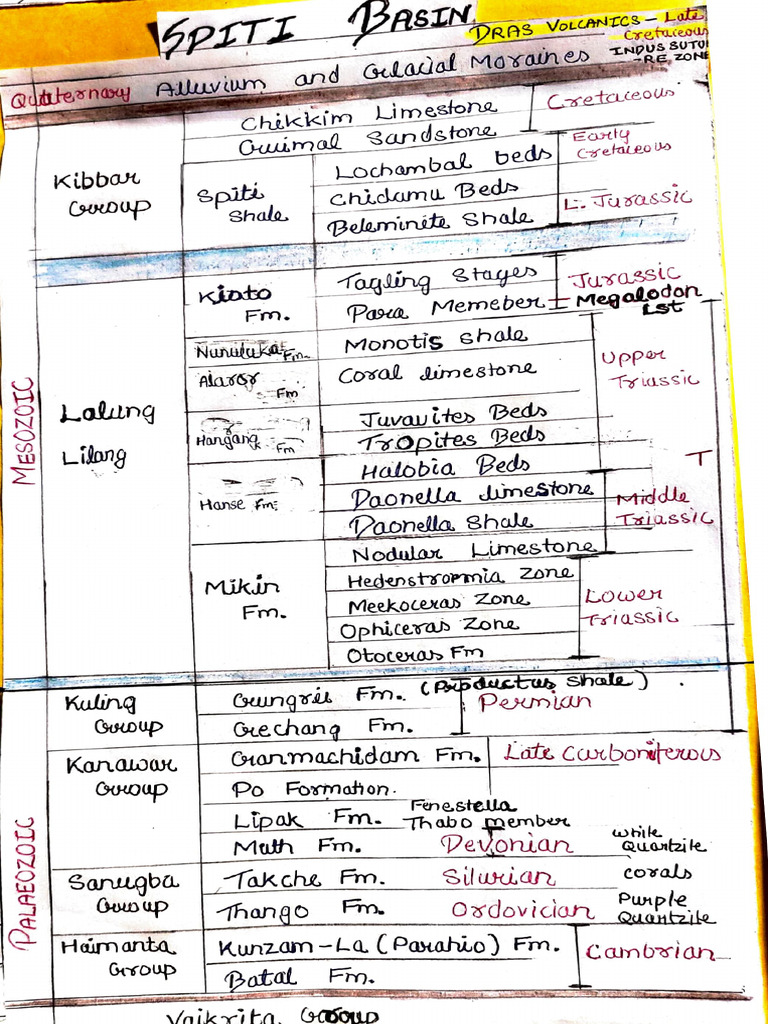 SPITI BASIN
DRAS VOLCANICS - Late
Cretaceous
INDUS SUTU
-RE ZONE
Quaternary Alluvium and Glacial Moraines
Chikkim Limestone
Cretaceous
Guimal Sandstone
Kibbar
Group
Spiti
Shale
Lochambal beds
Early
Cretaceous
Chidamu Beds
Beleminite Shale
L. Jurassic
MESOZOIC
Lalung
Lilang
Kioto
Fm.
Tagling Stages
Jurassic
Para Memeber
Megalodon
Lst
Nunuluka Fm.
Monotis shale
Upper
Triassic
Alaror
Fm
Coral limestone
Hangang Fm
Juvavites Beds
Tropites Beds
Hanse Fm.
Halobia Beds
T
Daonella limestone
Daonella Shale
Middle
Triassic
Mikin
Fm.
Nodular Limestone
Hedenstropmia Zone
Meekoceras Zone
Ophiceras Zone
Otoceras Fm
Lower
Triassic
PALAEOZOIC
Kuling
Group
Gungrii Fm. (Productus Shale)
Gechang Fm.
Permian
Kanawar
Group
Granmachidam Fm.
Late Carboniferous
Po Formation.
Lipak Fm.
Fenestella
Thabo member
Muth Fm.
Devonian
white
Quartzite
Sanugba
Group
Takche Fm.
Silurian
corals
Thango Fm.
Ordovician
Purple
Quartzite
Haimanta
Group
Kunzam-La (Parahio) Fm.
Batal Fm.
Cambrian
Vaikrita Group